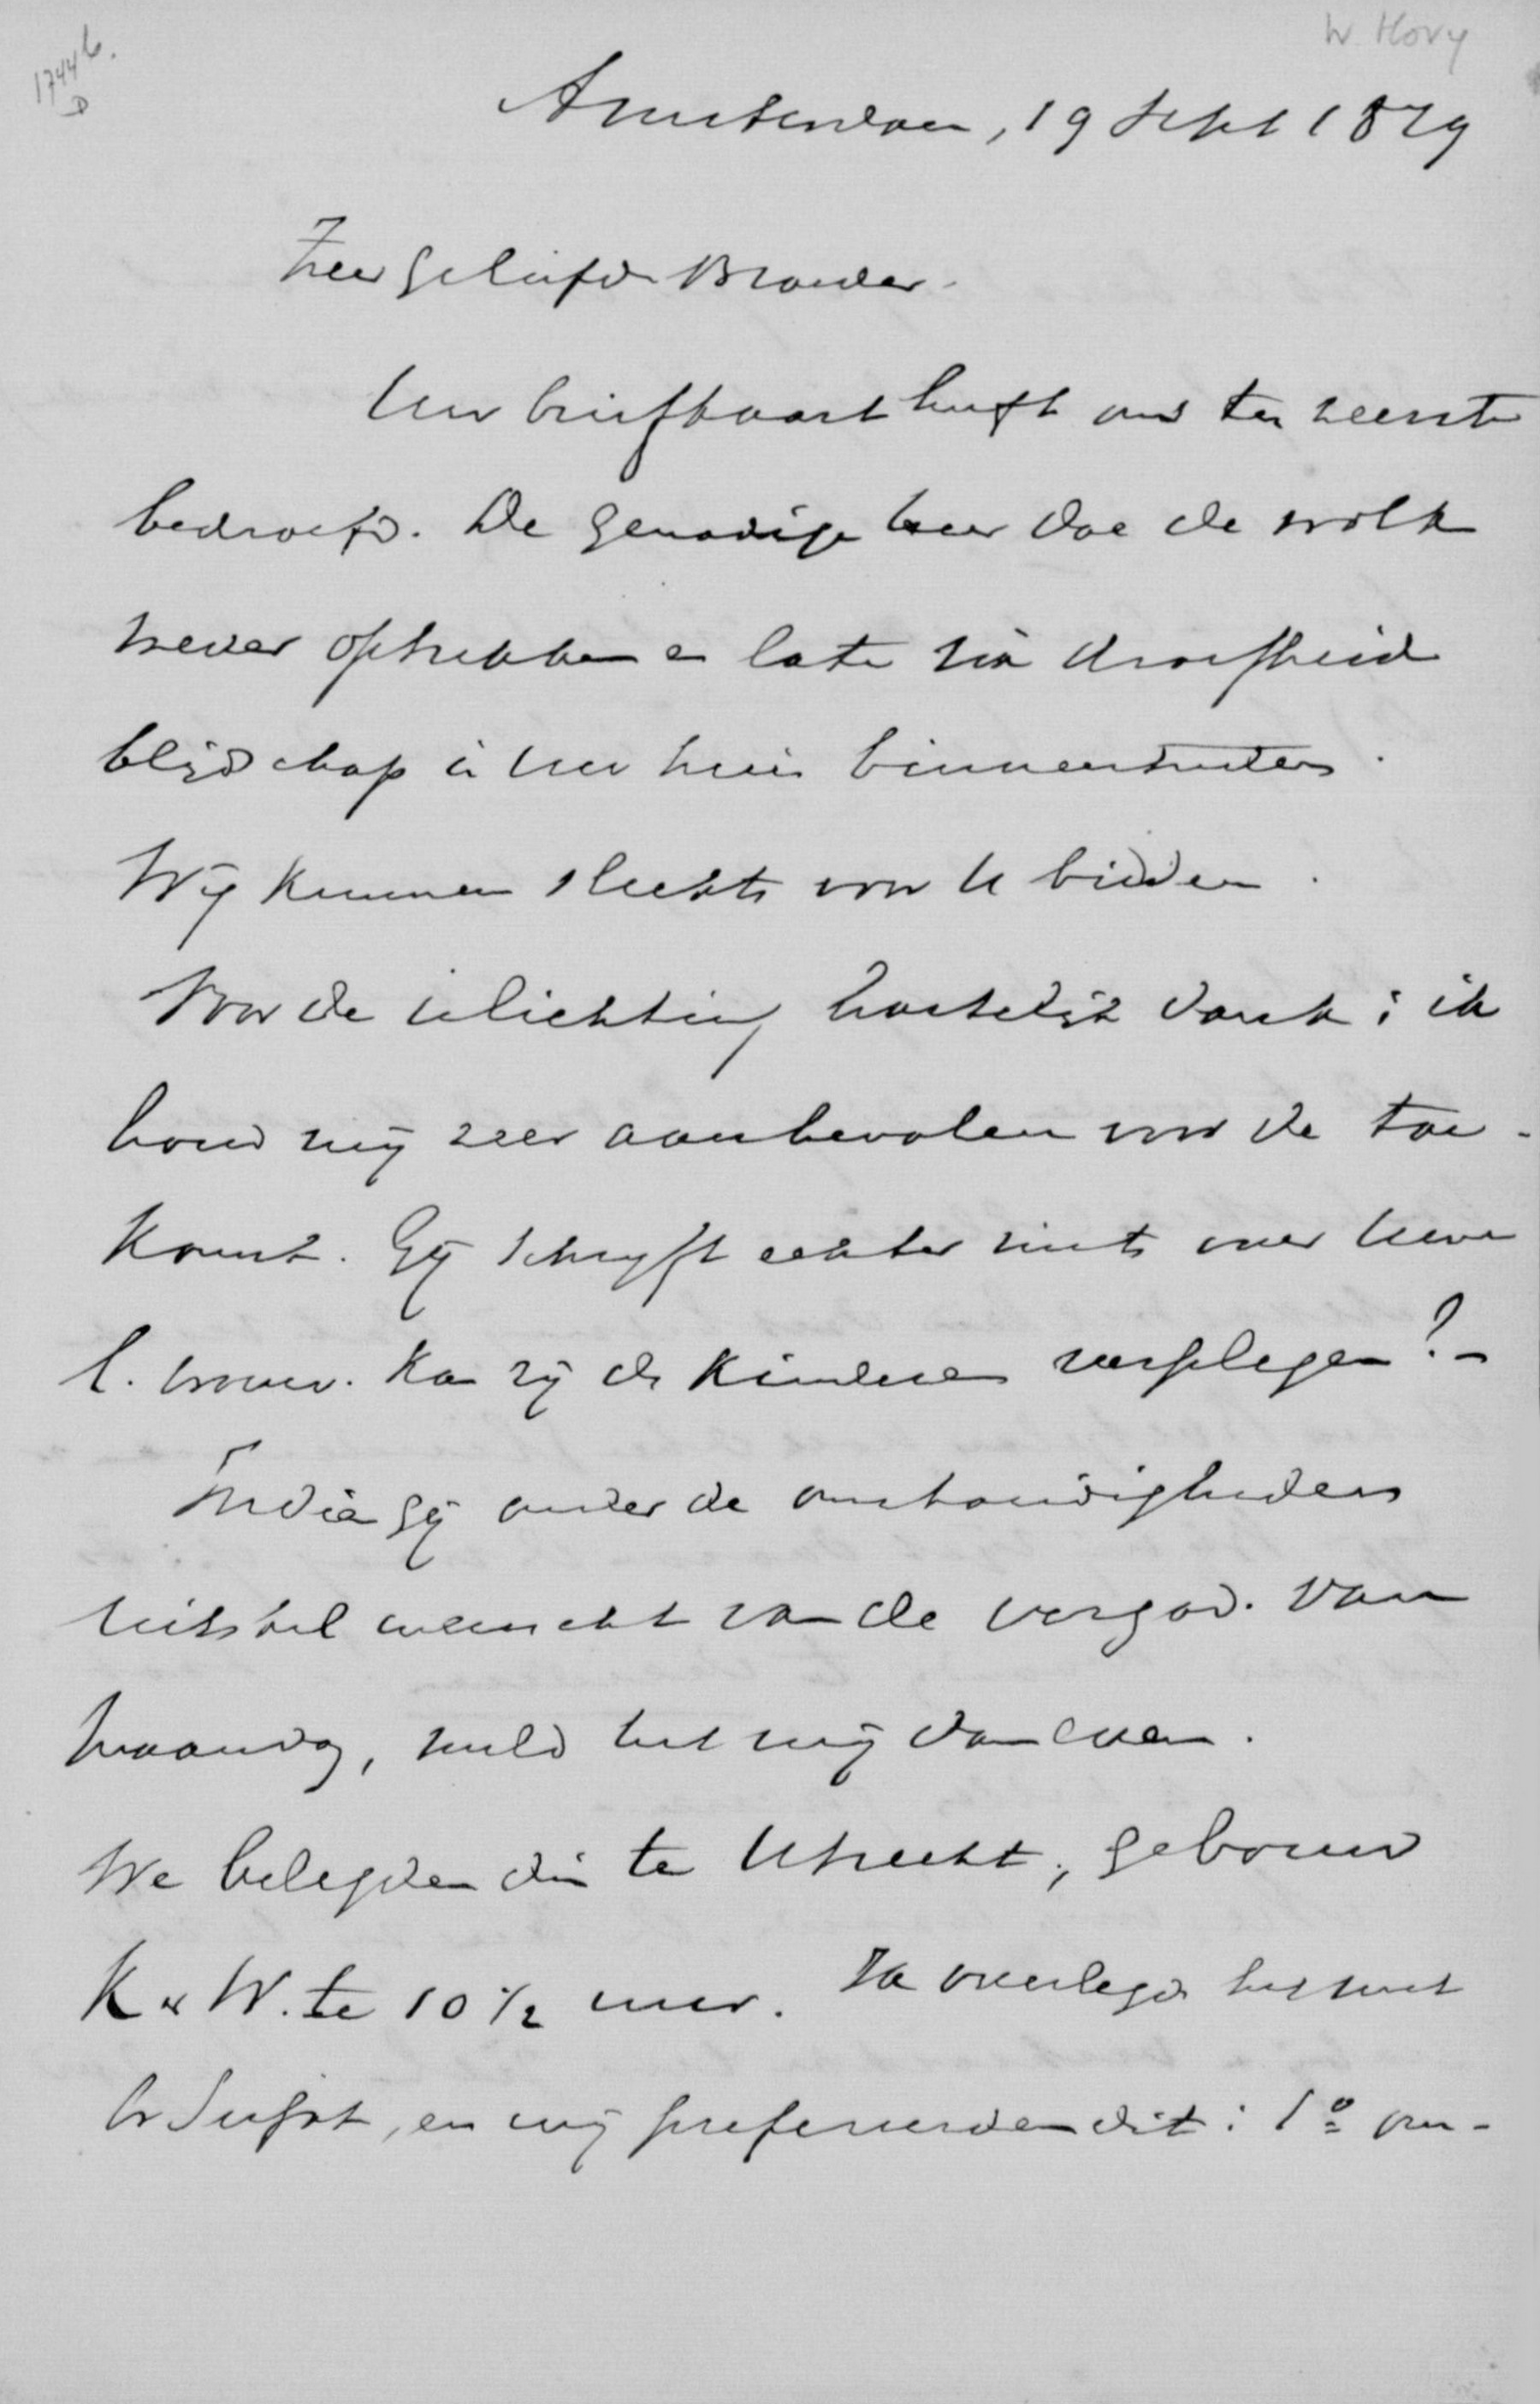 1744b.
D
W. Hovy
Amsterdam, 19 Sept 1879
Zeer geliefde Broeder.
Uw briefkaart heeft ons ten zeerste
bedroefd. De genadige heer doe de wolk
weder optrekken en late na droefheid
blijdschap in uw huis binnentreden.
Wij kunnen slechts voor U bidden.
Voor de inlichting hartelijk dank; ik
houd mij zeer aanbevolen voor de toe-
komst. Gij schrijft echter niets over uwe
l. vrouw. Kan zij de kinderen verplegen? -
Indien gij onder de omstandigheden
uitstel wenscht van de vergad. van
maandag, meld het mij dan even.
We belegden die te Utrecht, gebouw
K & W. te 10 1/2 uur. Ik overlegde het met
br , en wij prefereerden dit: 1º om-